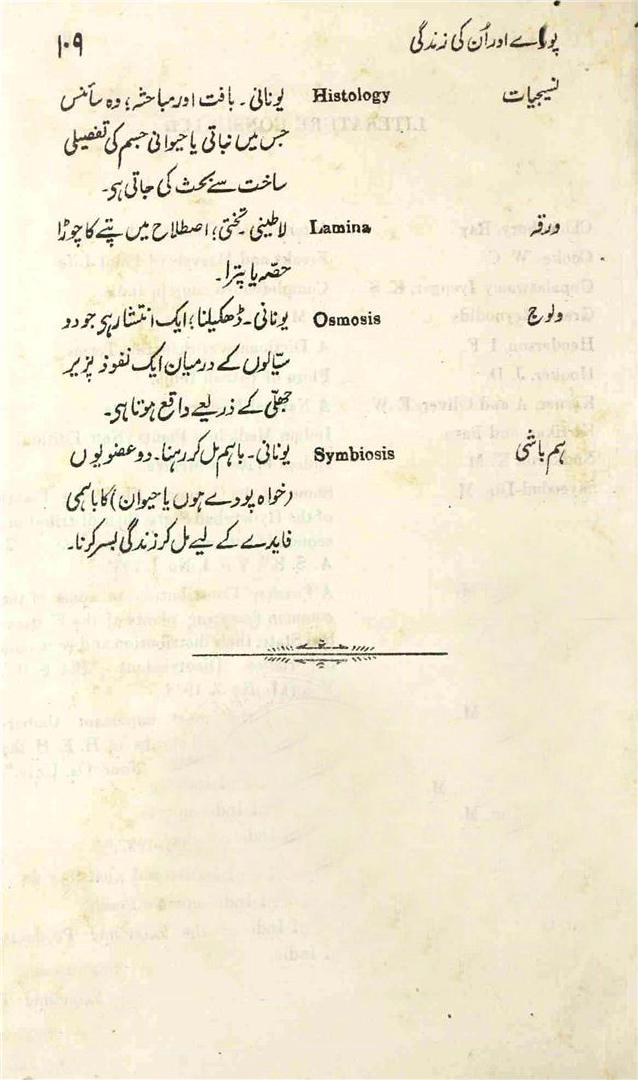 پودے اور اُن کی زندگی ۱۰۹
نسیجیات Histology یونانی۔ بافت اور مباحثہ؛ وہ سائنس
جس میں نباتی یا حیوانی جسم کی تفصیلی
ساخت سے بحث کی جاتی ہی۔
ورقہ Lamina لاطینی۔ تختی؛ اصطلاح میں پتے کا چوڑا
حصّہ یا پترا۔
ولوج Osmosis یونانی۔ ڈھکیلنا؛ ایک انتشار ہی جو دو
سیّالوں کے درمیان ایک نفوذ پزیر
جھلّی کے ذریعے واقع ہوتا ہی۔
ہم باشی Symbiosis یونانی۔ باہم مل کر رہنا۔ دو عضویوں
(خواہ پودے ہوں یا حیوان) کا باہمی
فایدے کے لیے مل کر زندگی بسر کرنا۔